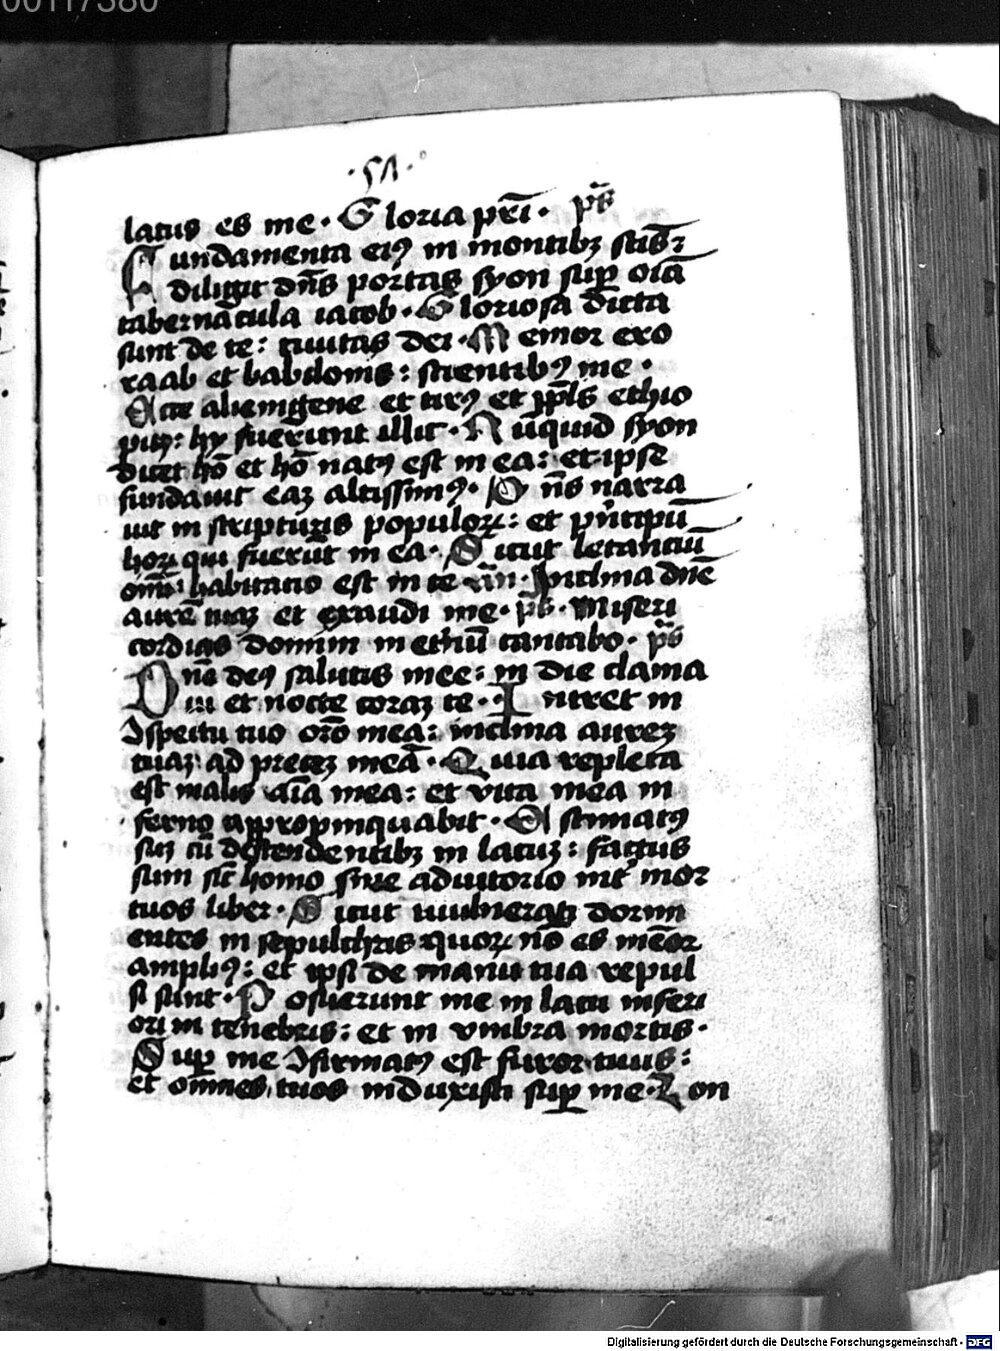 00117380
latus es me. Gloria pr̄i. p̄s
Fundamenta eiꝰ in montibꝫ sc̄is:
diligit dn̄s portas syon sup̱ oīa
tabernacula iacob. Gloriosa dicta
sunt de te: ciuitas dei. Memor ero
raab et babilonis: scientibꝰ me.
Ecce alienigene et tirꝰ et pp̄ls ethio
pū: hy fuerunt illic. Nūquid syon
dicet hō et hō natꝰ est in ea: et ipse
fundauit eaꝫ altissimꝰ. Dn̄s narra
uit in scripturis populoꝝ: et pn̄cipū
hoꝝ qui fuerūt in ea. Sicut letanciū
om̄i habitatio est in te an̄. Inclina dn̄e
aurē tuaꝫ et exaudi me. p̄s. Miseri
cordias domini in ethnū cantabo. p̄s
Dn̄e deꝰ salutis mee: in die clama
ui et nocte coraꝫ te. Intret in
ɔspectu tuo or̄o mea: inclina aureꝫ
tuaꝫ ad preceꝫ meā. Quia repleta
est malis aīa mea: et vita mea in
ferno appropinquabit. Estimatꝰ
suꝫ cū descendentibꝫ in lacuꝫ: factus
sum sic̄ homo sine adiutorio int̄ mor
tuos liber. Sicut uulnerati dormi
entes in sepulchris quoꝝ nō es mēor
ampliꝰ: et ipsi de manu tua repul
si sunt. Posuerunt me in lacu inferi
ori in tenebris: et in vmbra mortis.
Sup̱ me ɔfirmatꝰ est furor tuus:
et om̄nes tuos induxisti sup̱ me. Lon
Digitalisierung gefördert durch die Deutsche Forschungsgemeinschaft - DFG